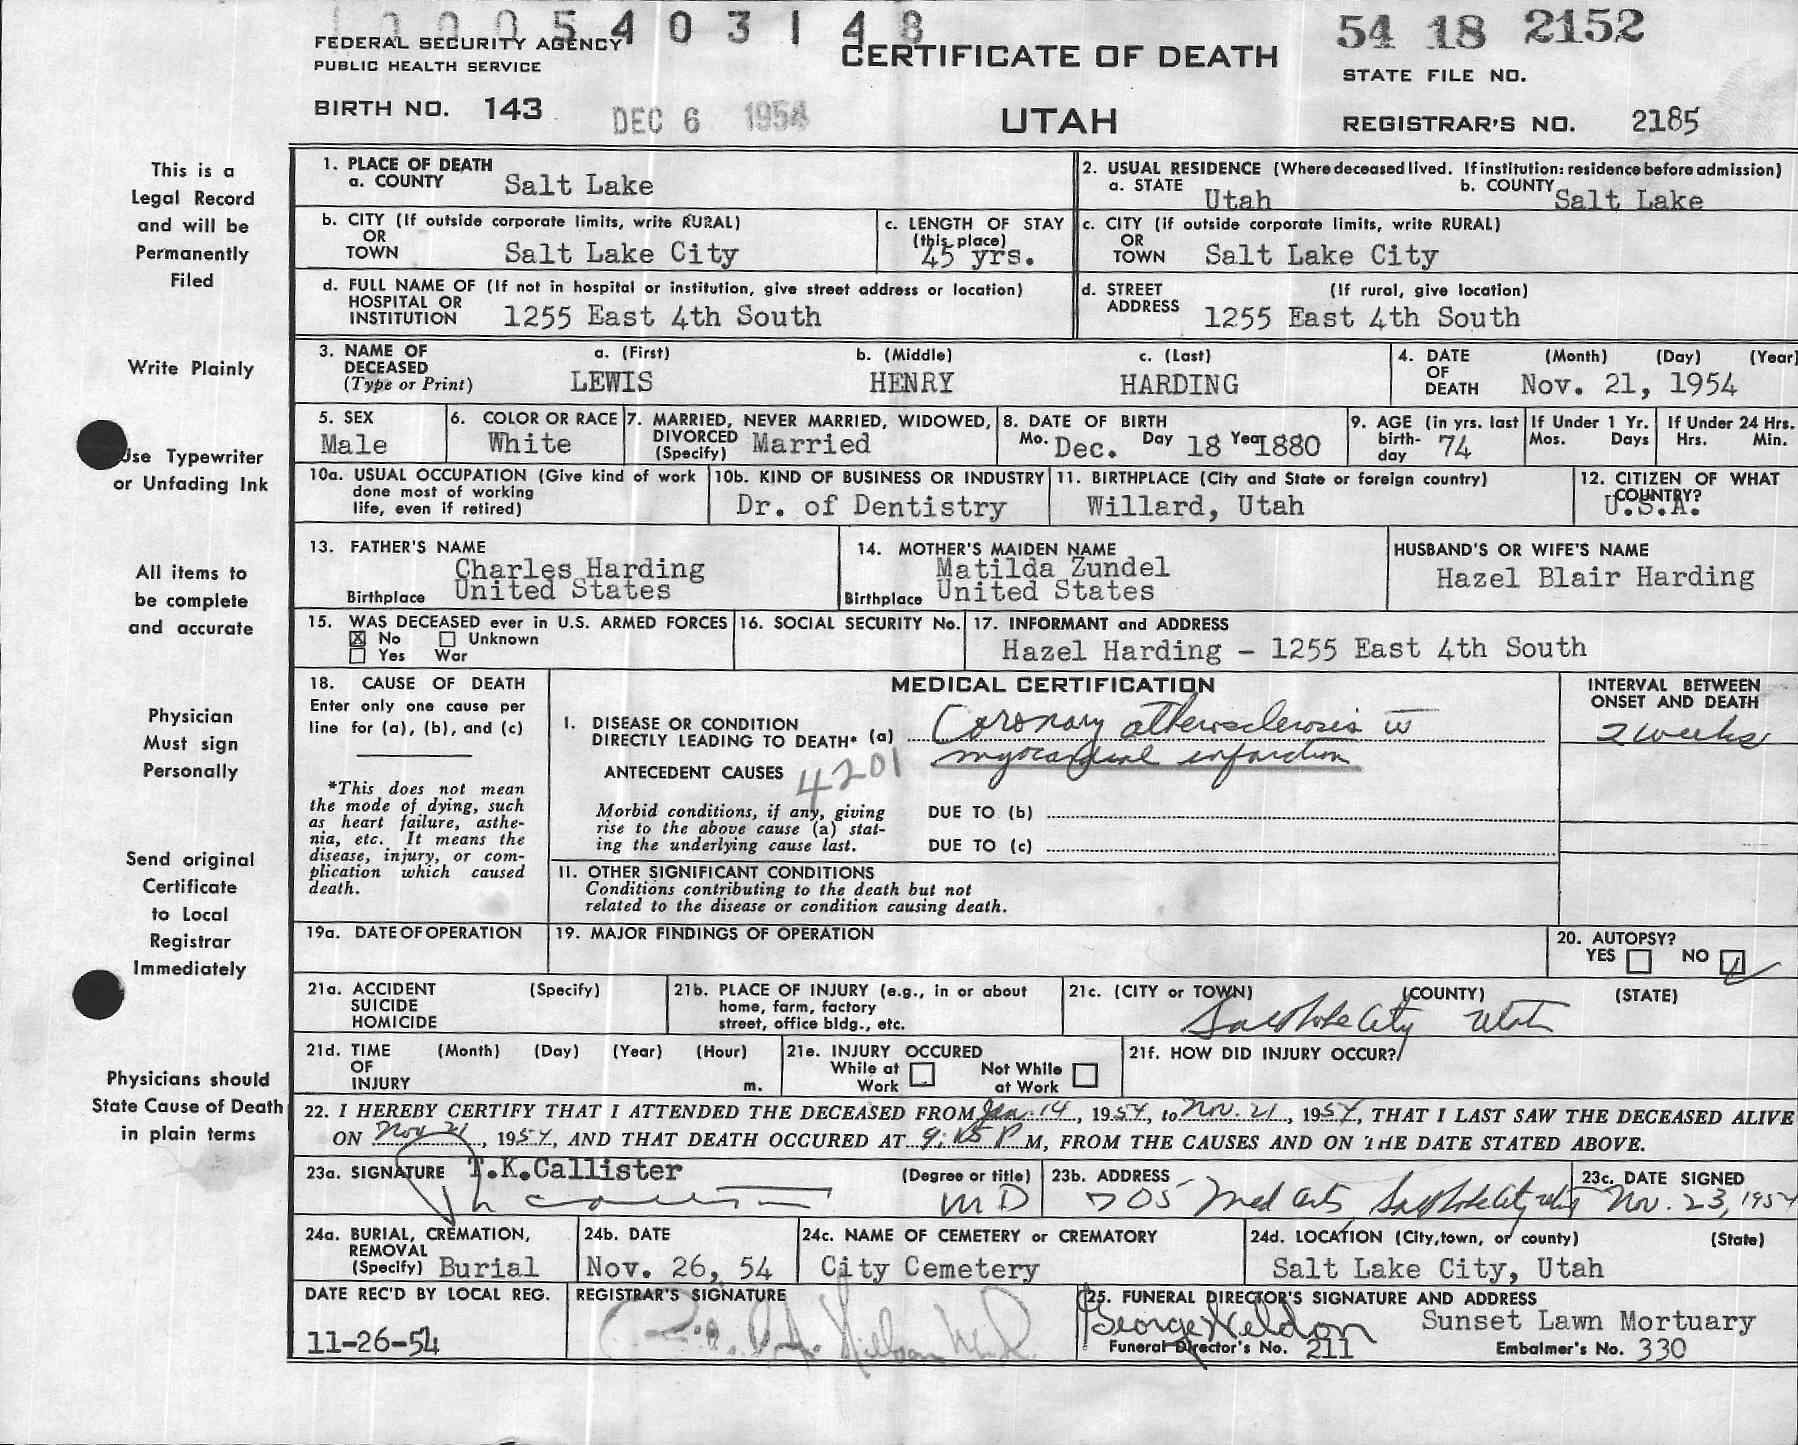 1005403148
54 18 2152
FEDERAL SECURITY AGENCY
PUBLIC HEALTH SERVICE
CERTIFICATE OF DEATH
STATE FILE NO.
BIRTH NO. 143
DEC 6 1954
UTAH
REGISTRAR'S NO. 2185
This is a
Legal Record
and will be
Permanently
Filed
Write Plainly
Use Typewriter
or Unfading Ink
All items to
be complete
and accurate
Physician
Must sign
Personally
Send original
Certificate
to Local
Registrar
Immediately
Physicians should
State Cause of Death
in plain terms
1. PLACE OF DEATH
a. COUNTY Salt Lake
2. USUAL RESIDENCE (Where deceased lived. If institution: residence before admission)
a. STATE Utah b. COUNTY Salt Lake
b. CITY (If outside corporate limits, write RURAL)
OR
TOWN Salt Lake City
c. LENGTH OF STAY
(this place)
45 yrs.
c. CITY (if outside corporate limits, write RURAL)
OR
TOWN Salt Lake City
d. FULL NAME OF (If not in hospital or institution, give street address or location)
HOSPITAL OR
INSTITUTION 1255 East 4th South
d. STREET (If rural, give location)
ADDRESS 1255 East 4th South
3. NAME OF DECEASED
(Type or Print)
a. (First) b. (Middle) c. (Last)
LEWIS HENRY HARDING
4. DATE OF DEATH (Month) (Day) (Year)
Nov. 21, 1954
5. SEX
Male
6. COLOR OR RACE
White
7. MARRIED, NEVER MARRIED, WIDOWED,
DIVORCED (Specify) Married
8. DATE OF BIRTH
Mo. Dec. Day 18 Year 1880
9. AGE (in yrs. last birth-day 74
If Under 1 Yr.
Mos. Days
If Under 24 Hrs.
Hrs. Min.
10a. USUAL OCCUPATION (Give kind of work
done most of working
life, even if retired)
10b. KIND OF BUSINESS OR INDUSTRY
Dr. of Dentistry
11. BIRTHPLACE (City and State or foreign country)
Willard, Utah
12. CITIZEN OF WHAT
COUNTRY?
U.S.A.
13. FATHER'S NAME
Charles Harding
Birthplace United States
14. MOTHER'S MAIDEN NAME
Matilda Zundel
Birthplace United States
HUSBAND'S OR WIFE'S NAME
Hazel Blair Harding
15. WAS DECEASED ever in U.S. ARMED FORCES
X No Unknown
Yes War
16. SOCIAL SECURITY No.
17. INFORMANT and ADDRESS
Hazel Harding - 1255 East 4th South
18. CAUSE OF DEATH
Enter only one cause per
line for (a), (b), and (c)
*This does not mean
the mode of dying, such
as heart failure, asthe-
nia, etc. It means the
disease, injury, or com-
plication which caused
death.
MEDICAL CERTIFICATION
INTERVAL BETWEEN
ONSET AND DEATH
2 weeks
I. DISEASE OR CONDITION
DIRECTLY LEADING TO DEATH* (a) Coronary atherosclerosis w
myocardial infarction
ANTECEDENT CAUSES 4201
Morbid conditions, if any, giving
rise to the above cause (a) stat-
ing the underlying cause last.
DUE TO (b)
DUE TO (c)
11. OTHER SIGNIFICANT CONDITIONS
Conditions contributing to the death but not
related to the disease or condition causing death.
19a. DATE OF OPERATION
19. MAJOR FINDINGS OF OPERATION
20. AUTOPSY?
YES NO
21a. ACCIDENT (Specify)
SUICIDE
HOMICIDE
21b. PLACE OF INJURY (e.g., in or about
home, farm, factory
street, office bldg., etc.
21c. (CITY or TOWN) (COUNTY) (STATE)
Salt Lake City Utah
21d. TIME (Month) (Day) (Year) (Hour)
OF
INJURY m.
21e. INJURY OCCURED
While at Work Not While at Work
21f. HOW DID INJURY OCCUR?
22. I HEREBY CERTIFY THAT I ATTENDED THE DECEASED FROM Jan. 14, 1954, to Nov. 21, 1954, THAT I LAST SAW THE DECEASED ALIVE
ON Nov 21, 1954, AND THAT DEATH OCCURED AT 9:15 P M, FROM THE CAUSES AND ON THE DATE STATED ABOVE.
23a. SIGNATURE T.K.Callister
(Degree or title)
MD
23b. ADDRESS
705 Med Arts Salt Lake City Utah
23c. DATE SIGNED
Nov. 23, 1954
24a. BURIAL, CREMATION,
REMOVAL
(Specify) Burial
24b. DATE
Nov. 26, 54
24c. NAME OF CEMETERY or CREMATORY
City Cemetery
24d. LOCATION (City, town, or county) (State)
Salt Lake City, Utah
DATE REC'D BY LOCAL REG.
11-26-54
REGISTRAR'S SIGNATURE
25. FUNERAL DIRECTOR'S SIGNATURE AND ADDRESS
George Weldon Sunset Lawn Mortuary
Funeral Director's No. 211 Embalmer's No. 330